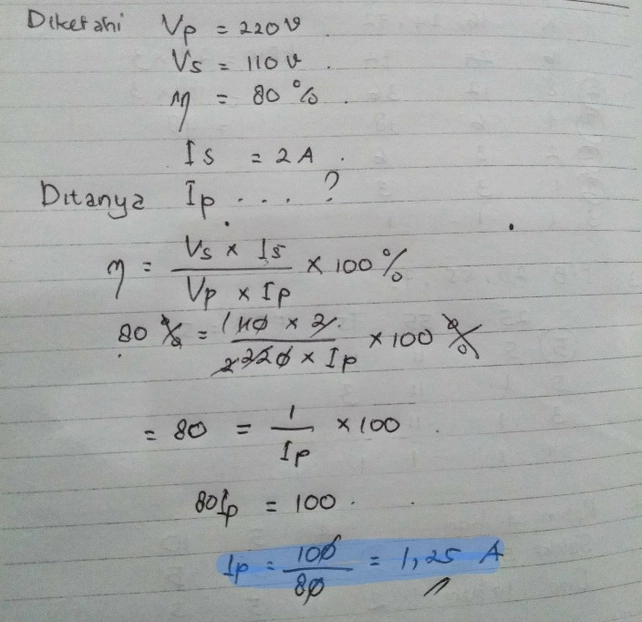 Diketahi Vp = 220 v
Vs = 110 v
η = 80 %
Is = 2 A
Ditanya Ip . . . . ?
η = Vs x Is / Vp x Ip x 100 %
80 % = 110 x 2 / 220 x Ip x 100 %
= 80 = 1 / Ip x 100
80Ip = 100
Ip = 100 / 80 = 1,25 A